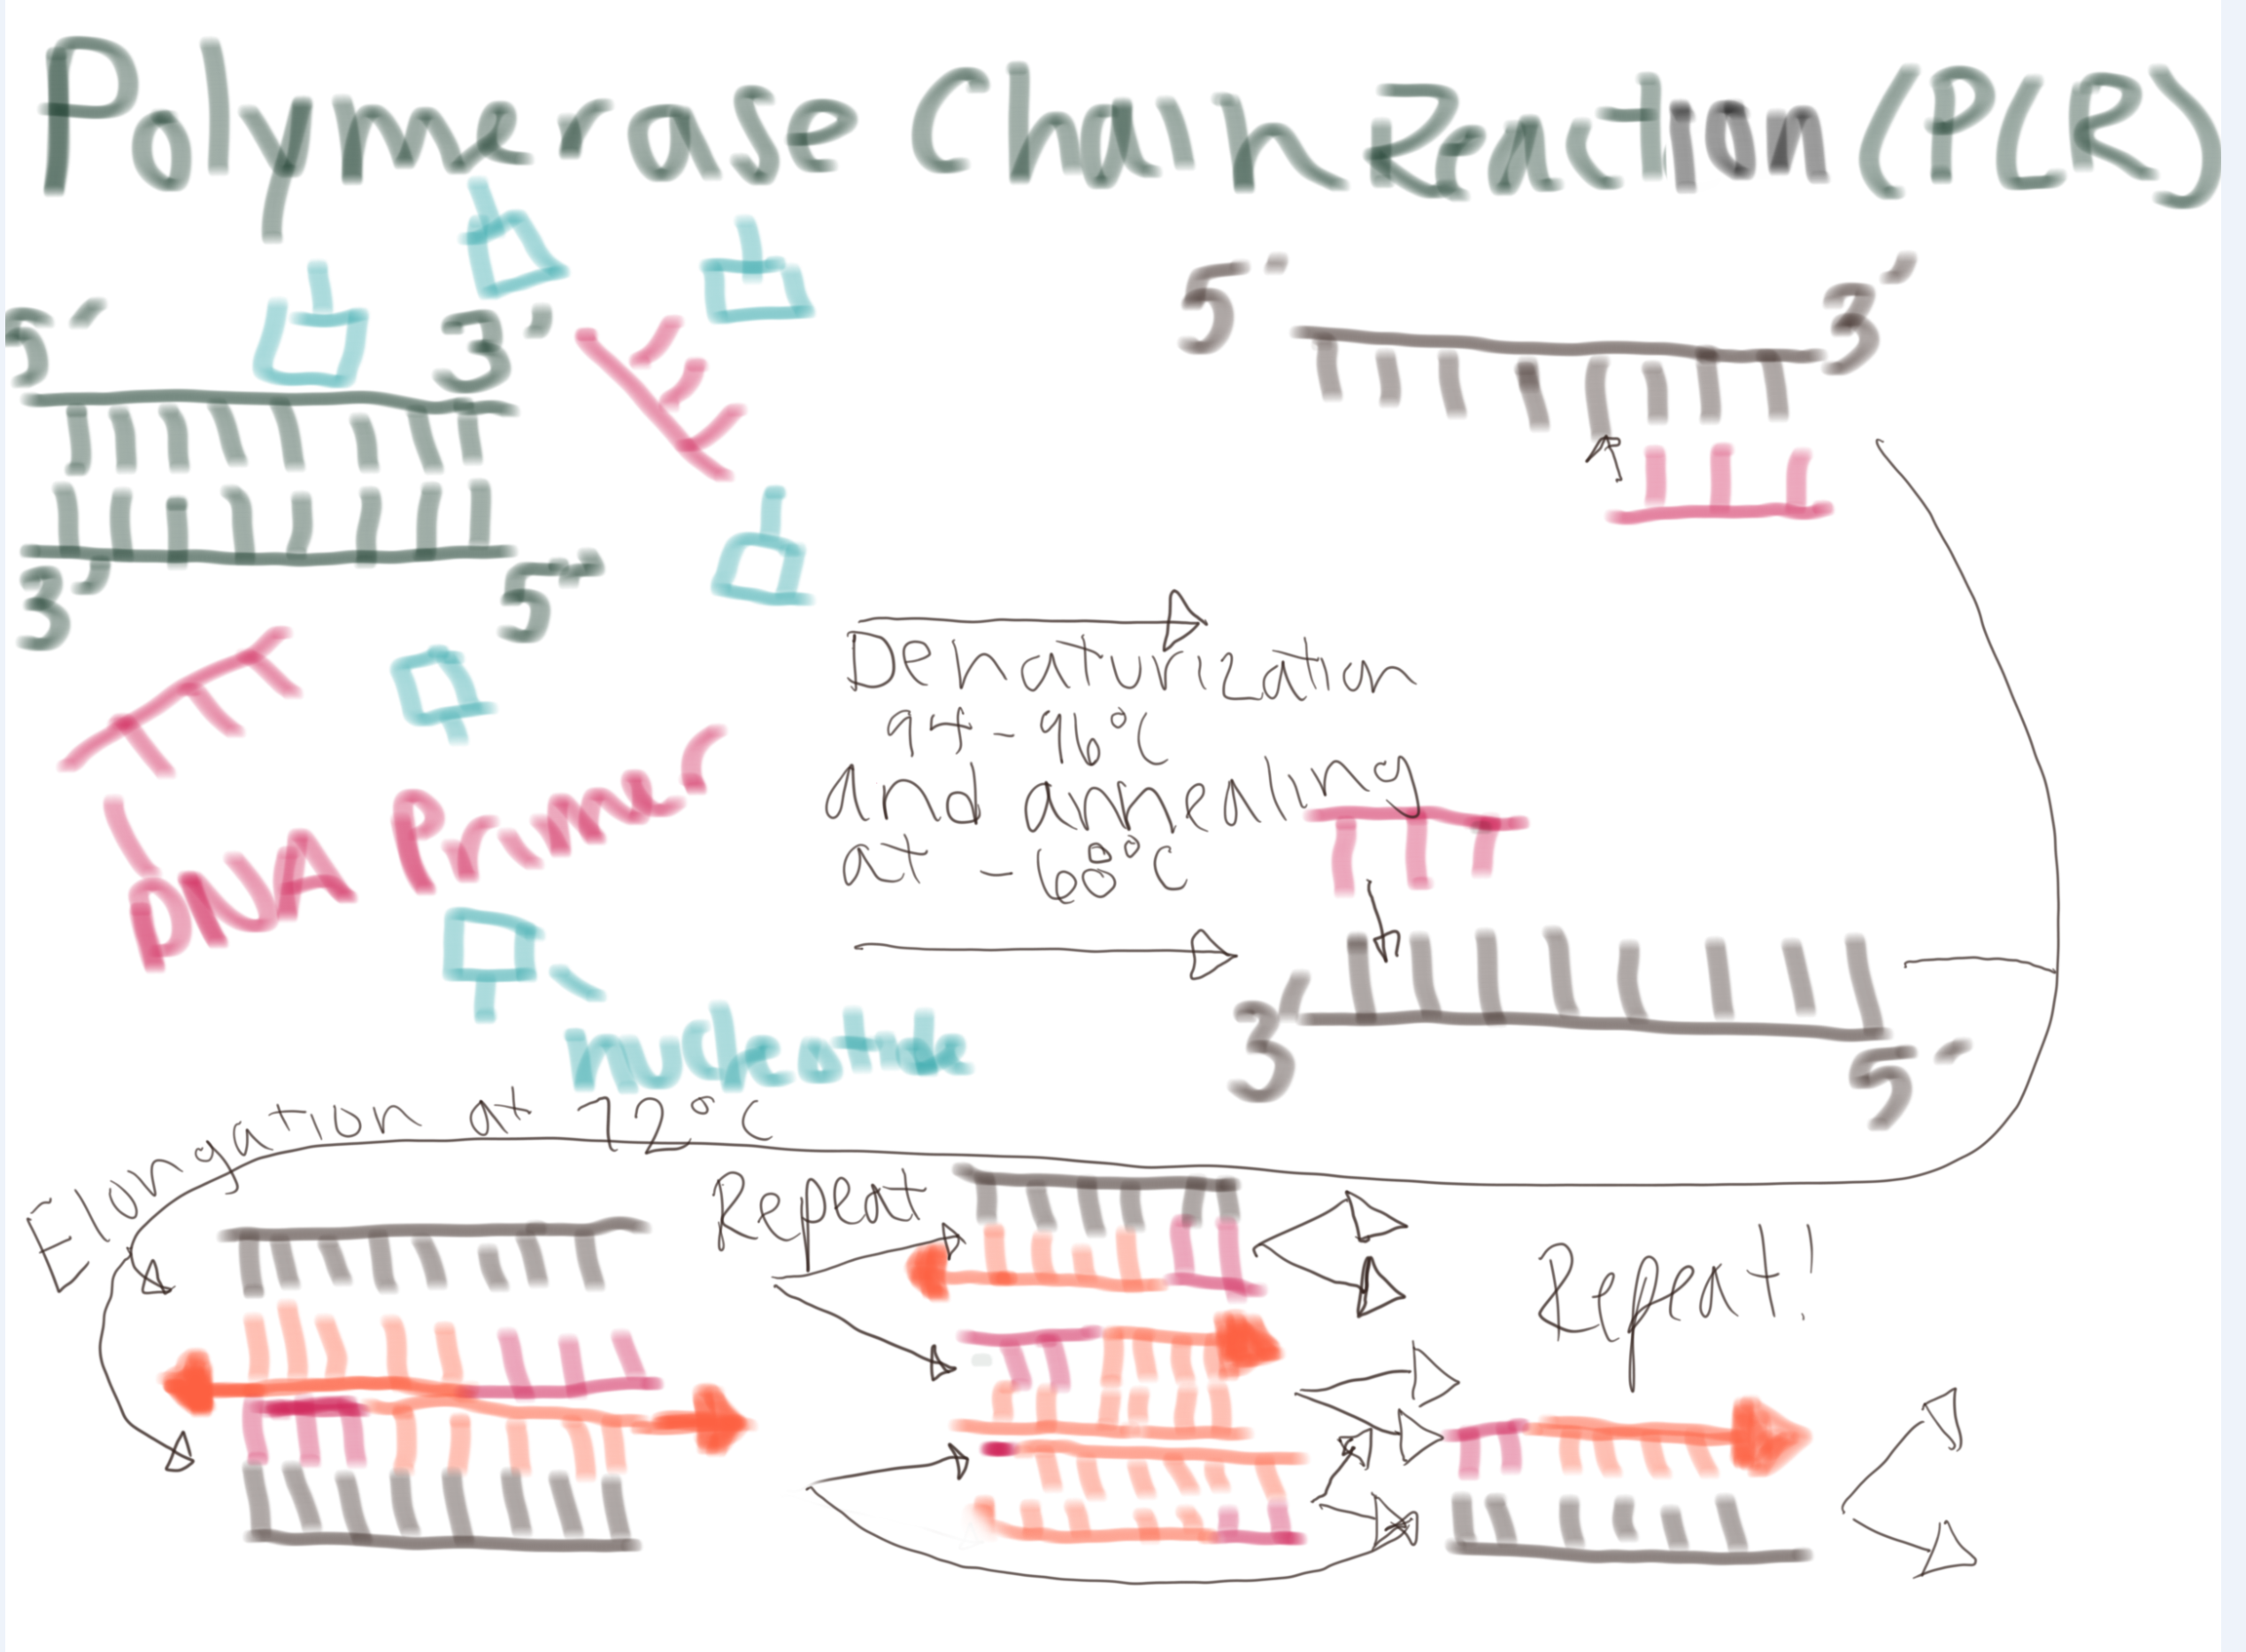 Polymerase Chain Reaction (PCR)
5' 3'
3' 5'
DNA Primer
nucleotide
Denaturization
94-96°C
and annealing
at ~68°C
5' 3'
3' 5'
Elongation at 72°C
Repeat
Repeat!